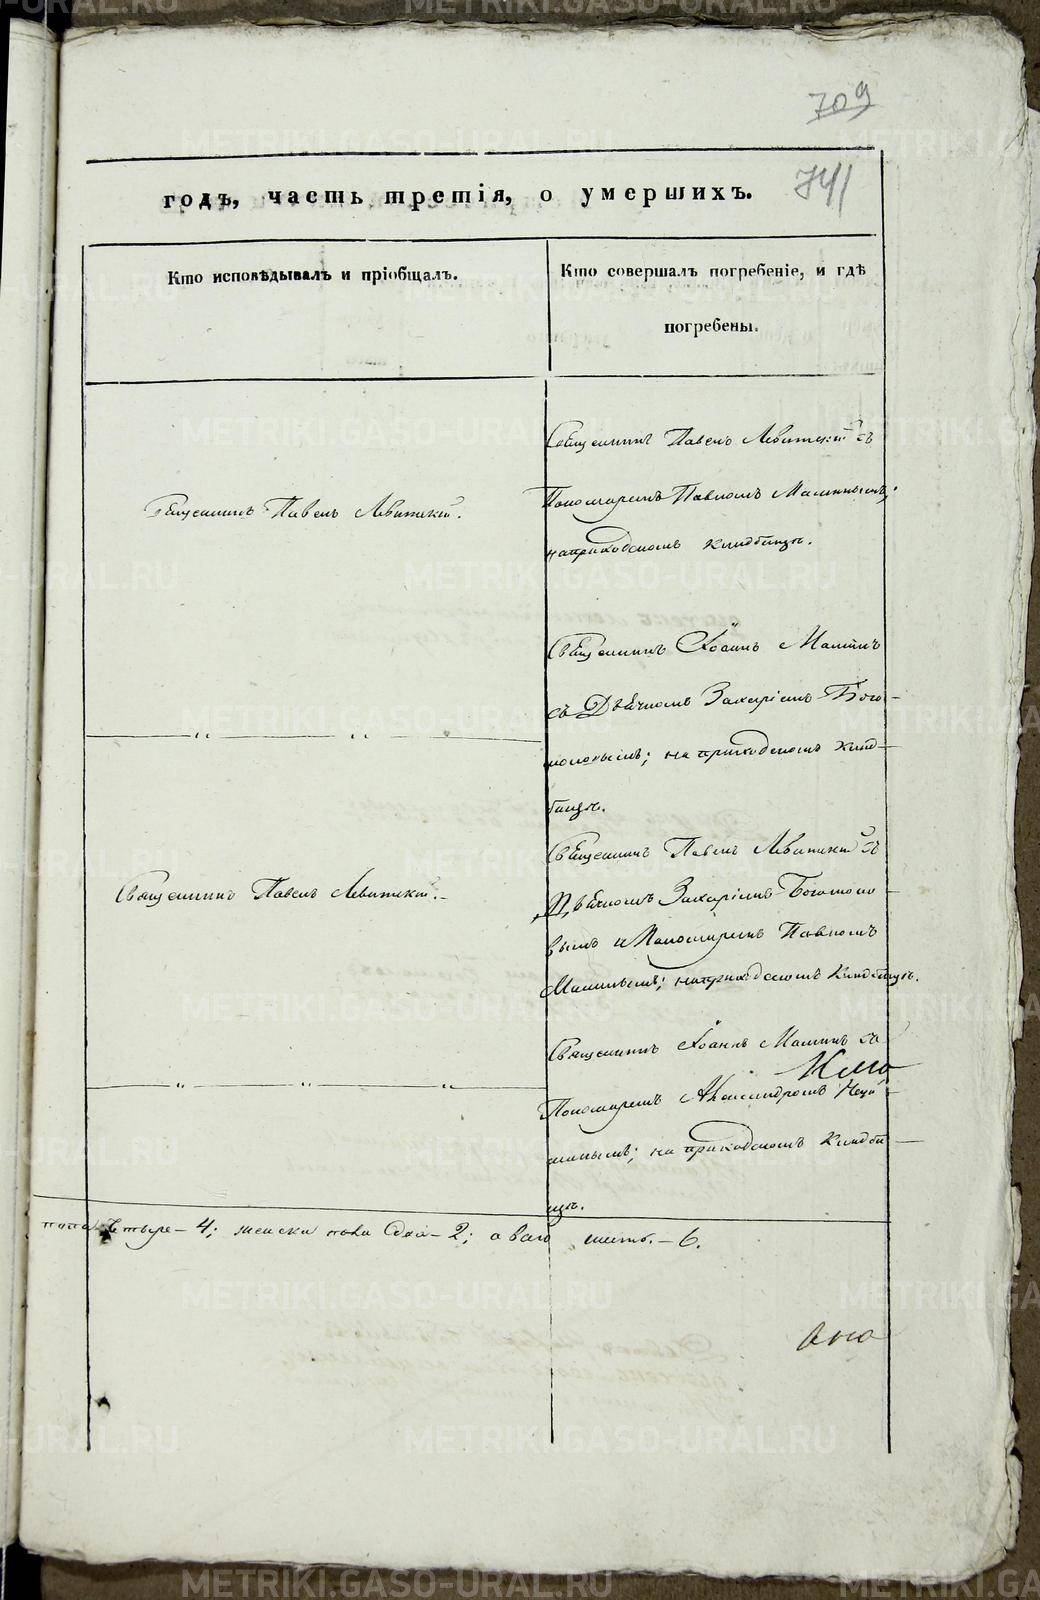 709
741
годъ, часть третія, о умершихъ.
Кто исповѣдывалъ и пріобщалъ.
Кто совершалъ погребеніе, и гдѣ
погребены.
Священникъ Павелъ Левитскій.
Священникъ Павелъ Левитскій съ
Пономаремъ Павломъ Малиным;
на приходскомъ кладбищѣ.
Священникъ Іоаннъ Малинъ
съ Дьячкомъ Захаріемъ Бого-
моловымъ; на приходскомъ клад-
бищѣ.
Священникъ Павелъ Левитскій.
Священникъ Павелъ Левитскій съ
Дьячкомъ Захаріемъ Богомоло-
вымъ и Пономаремъ Павломъ
Малинымъ; на приходскомъ кладбищѣ.
Священникъ Іоаннъ Малинъ съ
Пономаремъ Александромъ
на приходскомъ кладби-
щѣ.
четыре - 4; женска пола две - 2; а всего шесть. - 6.
METRIKI.GASO-URAL.RU